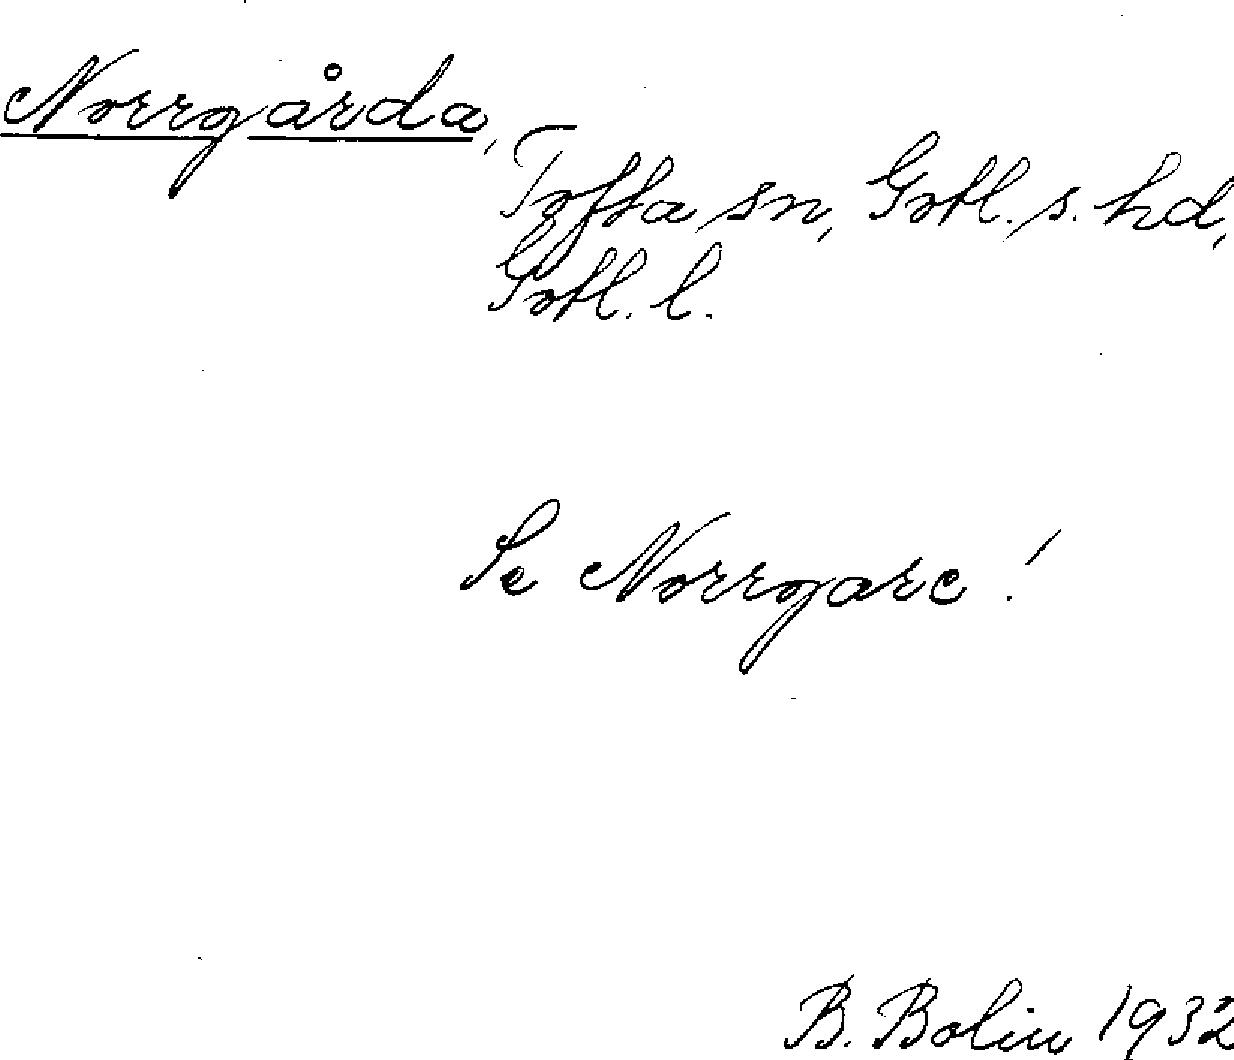 Norrgårda,
Tofta sn, Gotl. s. hd,
Gotl. l.
Se Norrgare!
B. Bolin 1932